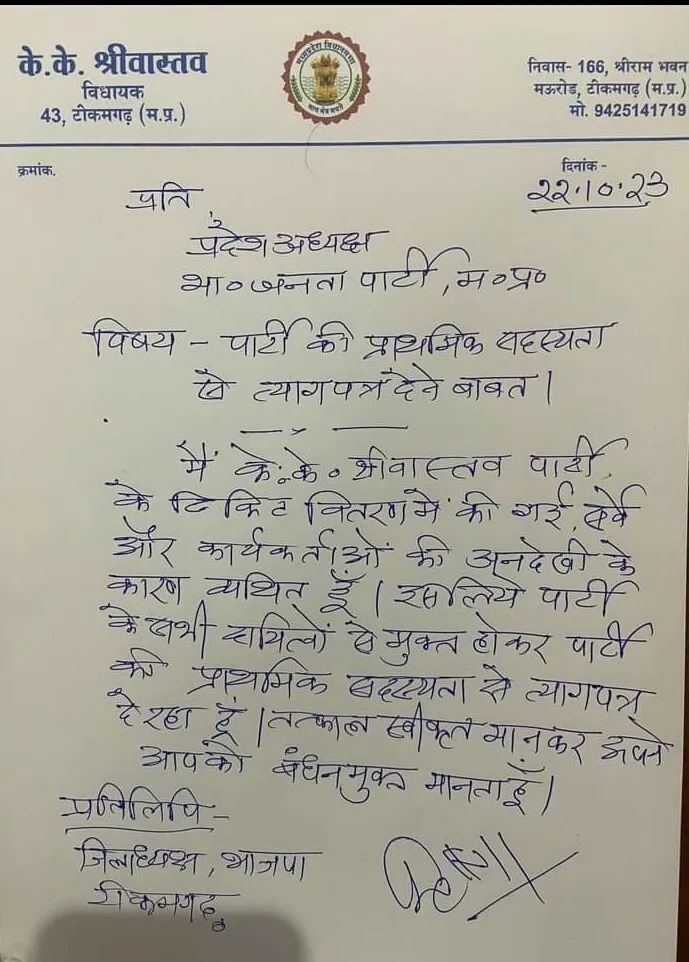 के.के. श्रीवास्तव
विधायक
43, टीकमगढ़ (म.प्र.)
निवास- 166, श्रीराम भवन
मऊरोड, टीकमगढ़ (म.प्र.)
मो. 9425141719
क्रमांक.
दिनांक -
22.10.23
प्रति,
प्रदेश अध्यक्ष
भा० जनता पार्टी, म०प्र०
विषय - पार्टी की प्राथमिक सदस्यता
से त्यागपत्र देने बाबत।
मैं के.के. श्रीवास्तव पार्टी
के टिकिट वितरण में की गई, सर्वे
और कार्यकर्ताओं की अनदेखी के
कारण व्यथित हूँ। इसलिये पार्टी
के सभी दायित्वों से मुक्त होकर पार्टी
की प्राथमिक सदस्यता से त्यागपत्र
दे रहा हूं। तत्काल स्वीकृत मानकर अपने
आपको बंधनमुक्त मानता हूँ।
प्रतिलिपि -
जिलाध्यक्ष, भाजपा
टीकमगढ़